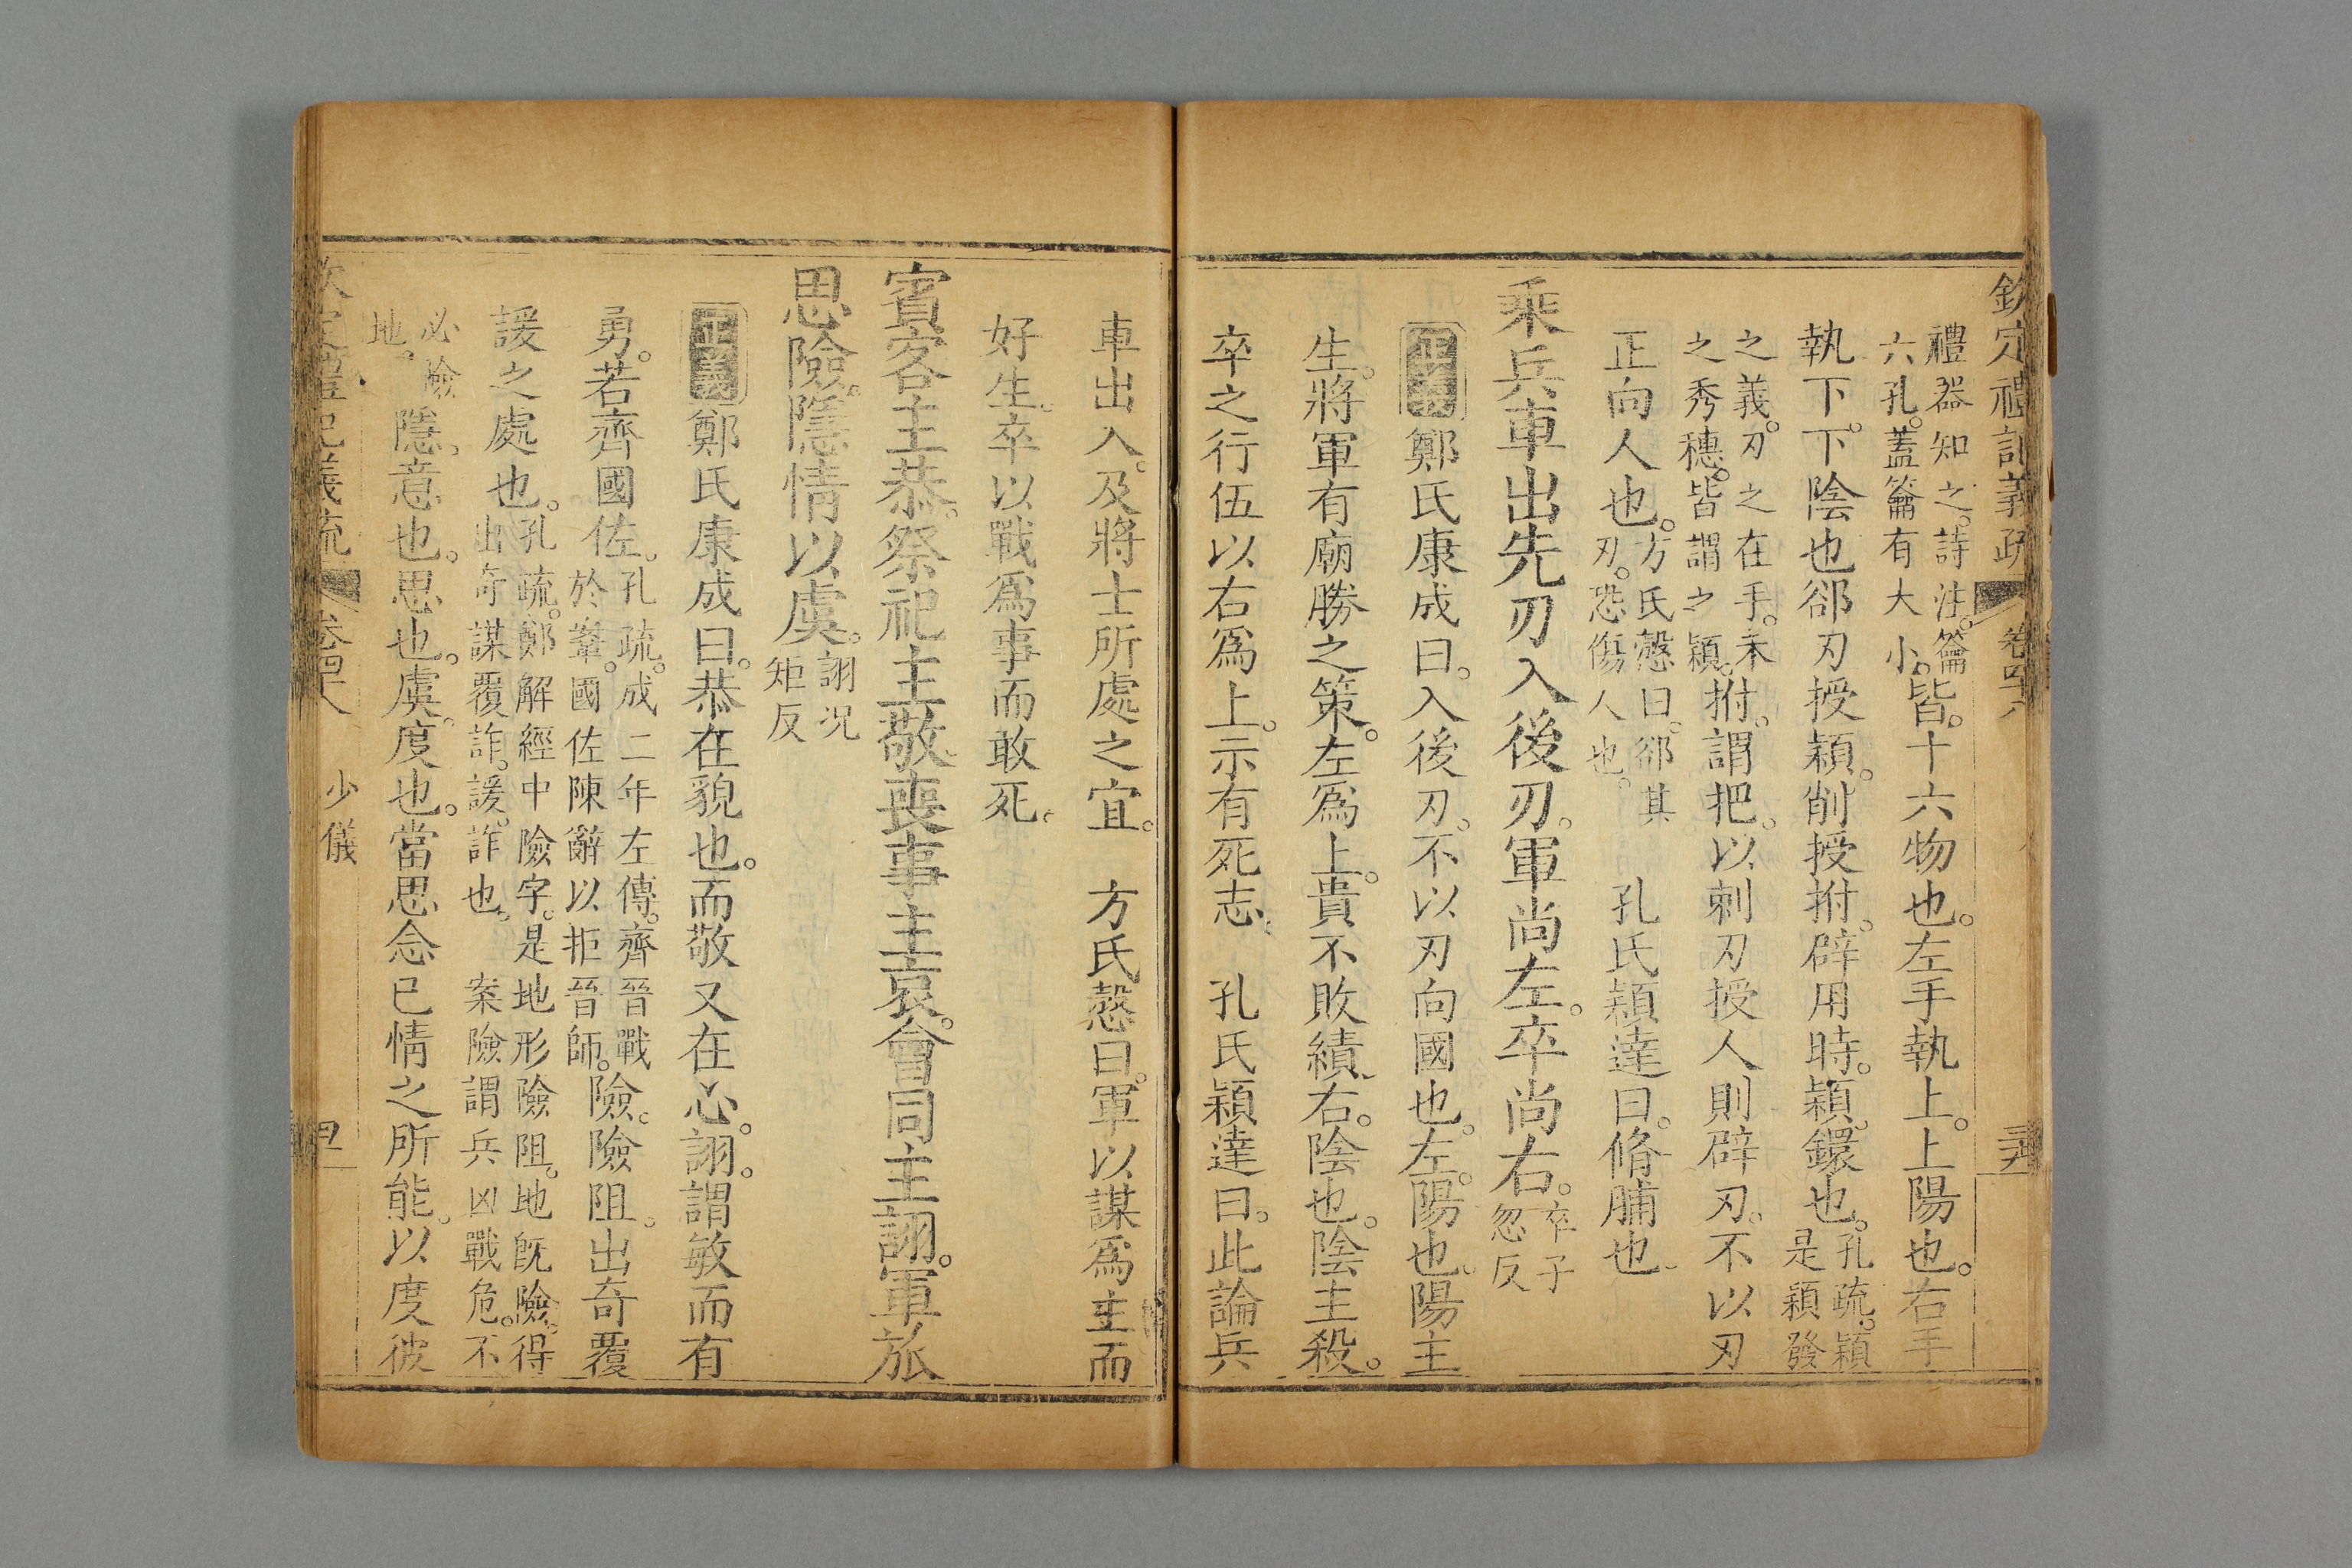 欽定禮記義疏 卷四十八 三九
禮器知之詩注籥
六孔蓋籥有大小皆十六物也左手執上上陽也右手
執下下陰也卻刃授穎削授拊辟用時穎鐶也孔疏穎
是穎發
之義刃之在手禾
之秀穗皆謂之穎拊謂把以刺刃授人則辟刃不以刃
正向人也方氏慤曰卻其
刃恐傷人也 孔氏穎達曰脩脯也
乘兵車出先刃入後刃軍尚左卒尚右卒子
忽反
正義鄭氏康成曰入後刃不以刃向國也左陽也陽主
生將軍有廟勝之策左爲上貴不敗績右陰也陰主殺
卒之行伍以右爲上示有死志 孔氏穎達曰此論兵
車出入及將士所處之宜 方氏慤曰軍以謀爲主而
好生卒以戰爲事而敢死
賓客主恭祭祀主敬喪事主哀會同主詡軍旅
思險隱情以虞詡況
矩反
正義鄭氏康成曰恭在貌也而敬又在心詡謂敏而有
勇若齊國佐孔疏成二年左傳齊晉戰
於鞌國佐陳辭以拒晉師險險阻出奇覆
諼之處也孔疏鄭解經中險字是地形險阻地旣險得
出奇謀覆詐諼詐也 案險謂兵凶戰危不
必險
地隱意也思也虞度也當思念已情之所能以度彼
定禮記義疏 卷四十八 少儀